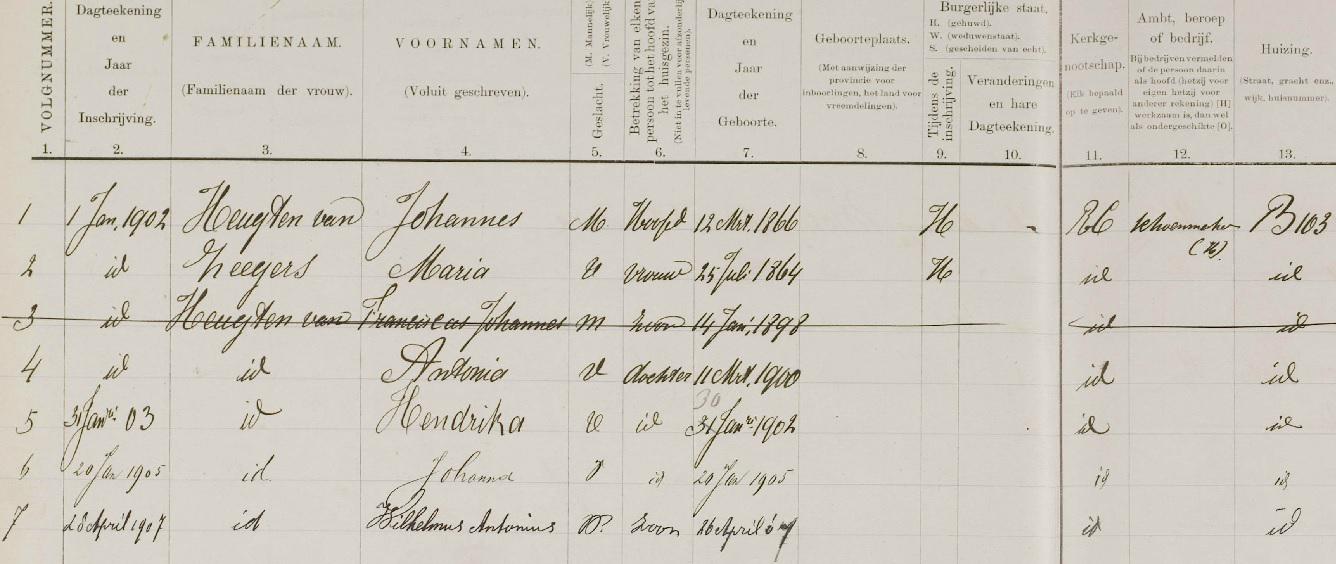 VOLGNUMMER.
Dagteekening
en
Jaar
der
Inschrijving.
FAMILIENAAM.
(Familienaam der vrouw).
VOORNAMEN.
(Voluit geschreven).
Geslacht.
(M. Mannelijk)
(V. Vrouwelijk)
Betrekking van elken
persoon tot het hoofd van
het huisgezin.
(Niet in te vullen voor afzonderlijk
levende personen).
Dagteekening
en
Jaar
der
Geboorte.
Geboorteplaats.
(Met aanwijzing der
provincie voor
inboorlingen, het land voor
vreemdelingen).
Burgerlijke staat.
H. (gehuwd).
W. (weduwenstaat).
S. (gescheiden van echt).
Tijdens de
inschrijving.
Veranderingen
en hare
Dagteekening.
Kerkge-
nootschap.
(Elk bepaald
op te geven).
Ambt, beroep
of bedrijf.
Bij bedrijven vermelden
of de persoon daarin
als hoofd (hetzij voor
eigen hetzij voor
anderer rekening) [H]
werkzaam is, dan wel
als ondergeschikte [O].
Huizing.
(Straat, gracht enz.,
wijk, huisnummer).
1. 2. 3. 4. 5. 6. 7. 8. 9. 10. 11. 12. 13.
1 1 Jan. 1902 Heugten van Johannes M. Hoofd 12 Mrt. 1866 H - RC schoenmaker B 103
(H).
2 id Zeegers Maria V vrouw 25 Juli 1864 H id id
3 id Heugten van Franciscus Johannes M zoon 14 Jan. 1898 id id
4 id id Antonia V dochter 11 Mrt. 1900 id id
30
5 31 Janri 03 id Hendrika V id 31 Janri 1902 id id
6 20 Jan 1905 id. Johanna V id 20 Jan 1905 id id
7 28 April 1907 id Wilhelmus Antonius M. zoon 26 April 07 id id